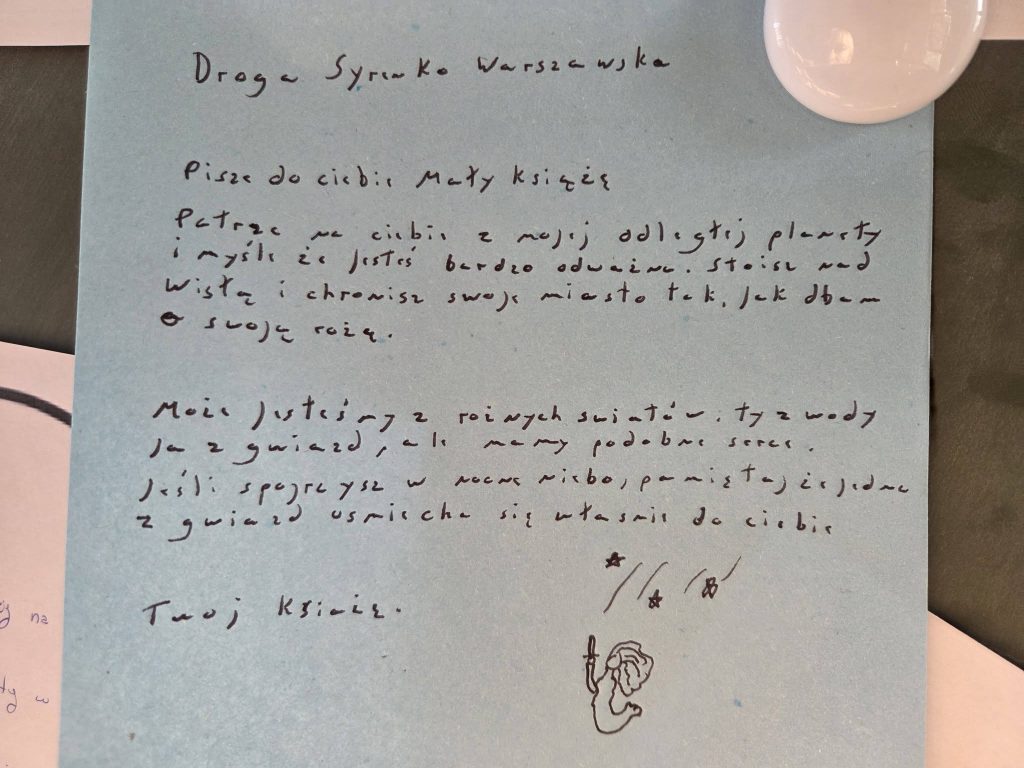 Droga Syrenko Warszawska
Pisze do ciebie Mały Książę
Patrze na ciebie z mojej odległej planety
i myśle że jesteś bardzo odważna. Stoisz nad
Wisłą i chronisz swoje miasto tak, jak dbam
o swoją rożę.
Może jesteśmy z rożnych swiatów. ty z wody
ja z gwiazd, ale mamy podobne serce.
Jeśli spojrzysz w nocne niebo, pamiętaj że jedna
z gwiazd usmiecha się własnie do ciebie
Twoj Książę.
na
w